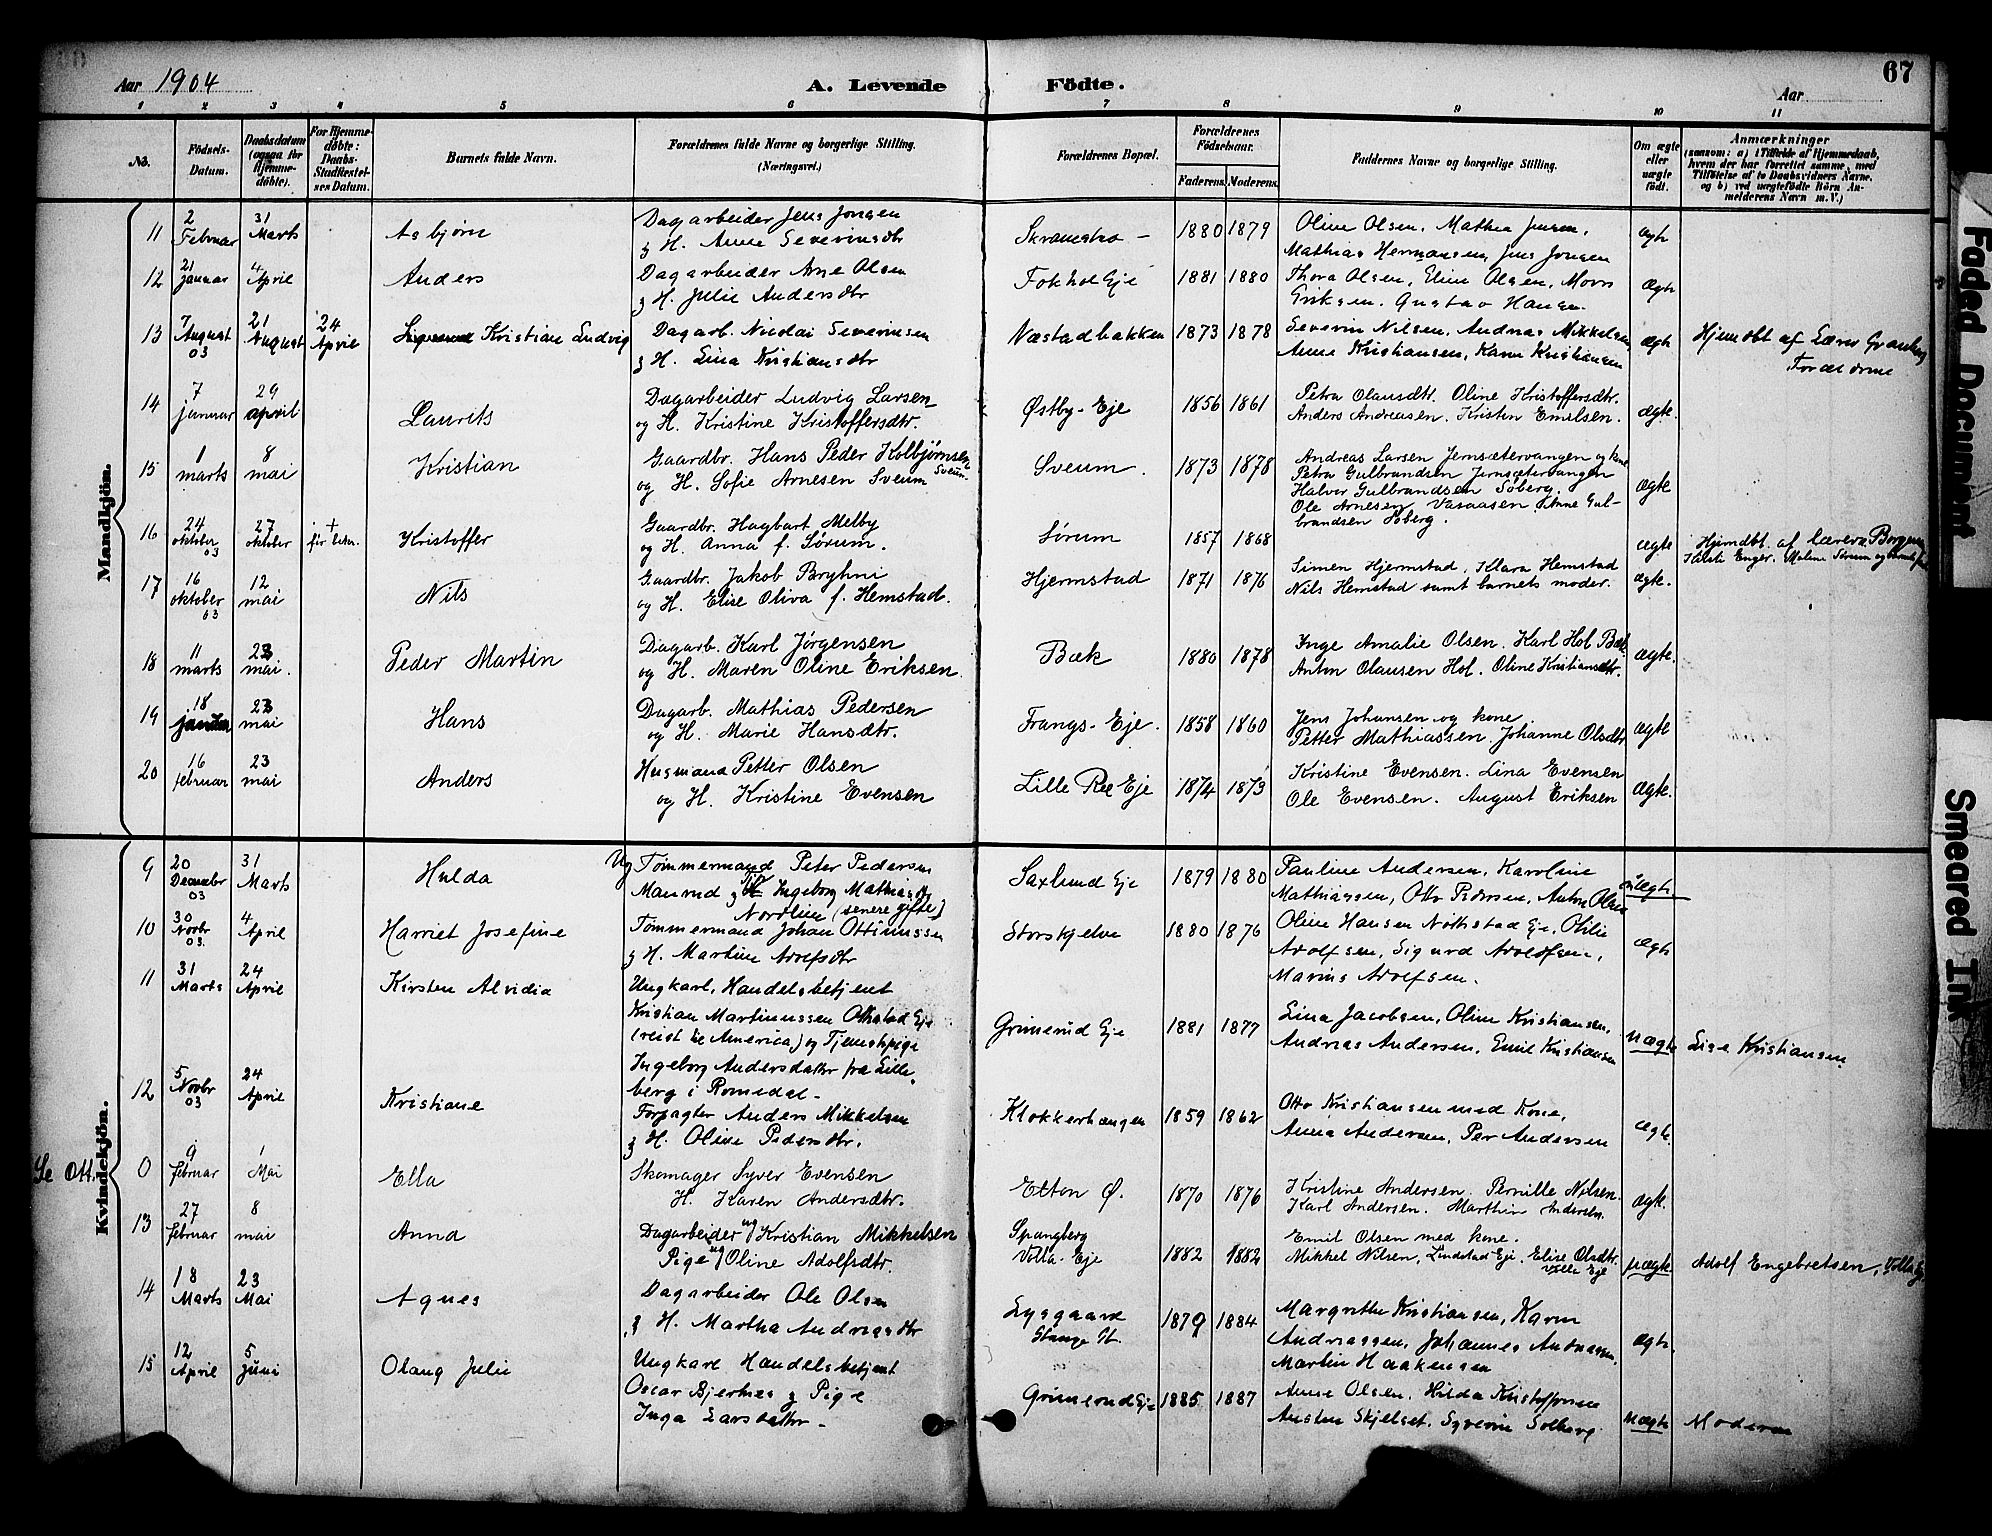 Aar 1904
A. Levende Födte.
67
Aar
1 2 3 4 5 6 7 8 9 10 11
No. Födsels-Datum. Daabsdatum (ogsaa for Hjemme-döbte). For Hjemme-döbte: Daabs-Stadfæstel-ses Datum. Barnets fulde Navn. Forældrenes fulde Navne og borgerlige Stilling. (Næringsvei.) Forældrenes Bopæl. Forældrenes Födselsaar. Faderens. Moderens. Faddernes Navne og borgerlige Stilling. Om ægte eller uægte födt. Anmærkninger
(saasom: a) i Tilfælde af Hjemmedaab, hvem der har forrettet samme, med Tilföielse af to Daabsvidners Navne, og b) ved uægtefödte Börn Anmelderens Navn m.V.)
Mandkjön.
11 2 Februar 31 Marts Asbjørn Dagarbeider Jens Jonsen
& H. Anne Severinsdtr 1880 1879 Oline Olsen, Mathea Jensen,
Mathias Hermansen, Jens Jonsen ægte
12 21 Januar 4 April Anders Dagarbeider Arne Olsen
& H. Julie Andersdtr Fokhol Eje 1881 1880 Thora Olsen, Eline Olsen,
Eriksen. Gustav Hansen. ægte
13 7 August 03 21 August 24 April Kristian Ludvig Dagarb. Nicolai Severinsen
& H. Lina Kristiansdtr Næstadbakken 1873 1878 Severin Nilsen, Andreas Mikkelsen,
Anne Kristiansen, Karen Kristiansen ægte Hjemdbt af Lærer
Forældrene
14 7 januar 29 april Laurits Dagarbeider Ludvig Larsen
og H. Kristine Kristoffersdtr. Østby-Eje 1856 1861 Petra Olausdtr. Oline Kristoffersdtr.
Anders Andreasen. Kristen Emelsen. ægte.
15 1 marts 8 mai Kristian Gaardbr. Hans Peder Kolbjørnsen Sveum.
og H. Sofie Arnesen Sveum Sveum. 1873 1878 Andreas Larsen Jernsætervangen og kone
Petra Gulbrandsen Jernsætervangen
Halvor Gulbrandsen Søberg.
Ole Arnesen Gul-
brandsen Søberg. ægte
16 24 oktober 03 27 oktober + før Kristoffer Gaardbr. Hagbart Melby
og H. Anna f. Sørum. Sørum 1857 1868 ægte Hjemdbt. af lærer Borgen
Enger. Malene Sørum
17 16 oktober 03 12 mai Nils Gaardbr. Jakob Bryhni
og H. Elise Oliva f. Hemstad. Hjermstad 1871 1876 Simen Hjermstad, Klara Hemstad
Nils Hemstad samt barnets moder. ægte.
18 11 marts 23 mai. Peder Martin Dagarb. Karl Jørgensen
og H. Maren Oline Eriksen. Bæk 1880 1878 Inge Amalie Olsen. Karl Hol Bæk
Anton Olausen Hol. Oline Kristiansdtr. ægte.
19 18 januar 23 mai Hans Dagarb. Mathias Pedersen
og H. Marie Hansdtr. Frangs-Eje. 1858 1860 Jens Johansen og kone
Petter Mathiassen. Johanne Olsdtr ægte
20 16 februar 23 mai Anders Husmand Petter Olsen
og H. Kristine Evensen Lille Ree Eje 1874 1873 Kristine Evensen. Lina Evensen
Ole Evensen. August Eriksen ægte.
Kvindekjön.
9 20 Decembr 03 31 Marts Hulda Ug Tømmermand Peter Pedersen
Maurud & Ingeborg
Nordlien (senere gifte) Saxlund Eje 1879 1880 Pauline Andersen, Karoline
Mathiassen, Otto Pedersen, Anton Olsen uægte
10 30 Novbr 03. 4 April Harriet Josefine Tømmermand Johan Ottinussen
& H. Martine Adolfsdtr Storskjelve 1880 1876 Oline Hansen Nøthstad Eje, Otilie
Adolfsen, Sigurd Adolfsen,
Marius Adolfsen. ægte
11 31 Marts 24 April Kirsten Alvidia Ungkarl, Handelsbetjent
Kristian Martinussen Ottestad Eje
(reist til America) og Tjenestepige
Ingeborg Andersdatter fra Lille-
berg i Romedal. Grimerud Eje 1881 1877 Lina Jacobsen, Oline Kristiansen,
Andreas Andersen, Emil Kristiansen uægte Lise Kristiansen
12 5 Novbr 03 24 April Kristiane Forpagter Anders Mikkelsen
& H. Oline Pedersdtr. Klokkerhaugen 1859 1862 Otto Kristiansen med Kone,
Anna Andersen, Per Andersen ægte.
Se Ott.
0 9 februar 1 Mai Ella Skomager Syver Evensen
H. Karen Andersdtr. Etton Ø. 1870 1876 Kristine Andersen. Pernille Nilsen.
Karl Andersen. Marthin Andersen. ægte.
13 27 februar 8 mai Anna Dagarbeider ug Kristian Mikkelsen
Pige ug Oline Adolfsdtr. Spangberg
Volla-Eje 1882 1882 Emil Olsen med kone.
Mikkel Nilsen, Lindstad Eje. Elise Olsdtr.
Volla Eje uægte. Adolf Engebretsen, Volla Eje
14 18 Marts 23 Mai Agnes Dagarbeider Ole Olsen
& H. Martha Andreasdtr Lysgaard
Stange St. 1879 1884 Margrethe Kristiansen, Karen
Andreassen, Johannes Andreassen,
Martin Haakensen ægte
15 12 April 5 Juni Olaug Julie Ungkarl Handelsbetjent
Oscar Bjerknes & Pige
Inga Larsdatter Grimerud Eje 1885 1887 Anne Olsen, Hilda Kristoffersen
Austen Skjelset, Syverin Solberg uægte Moderen
Faded Document
Smeared Ink